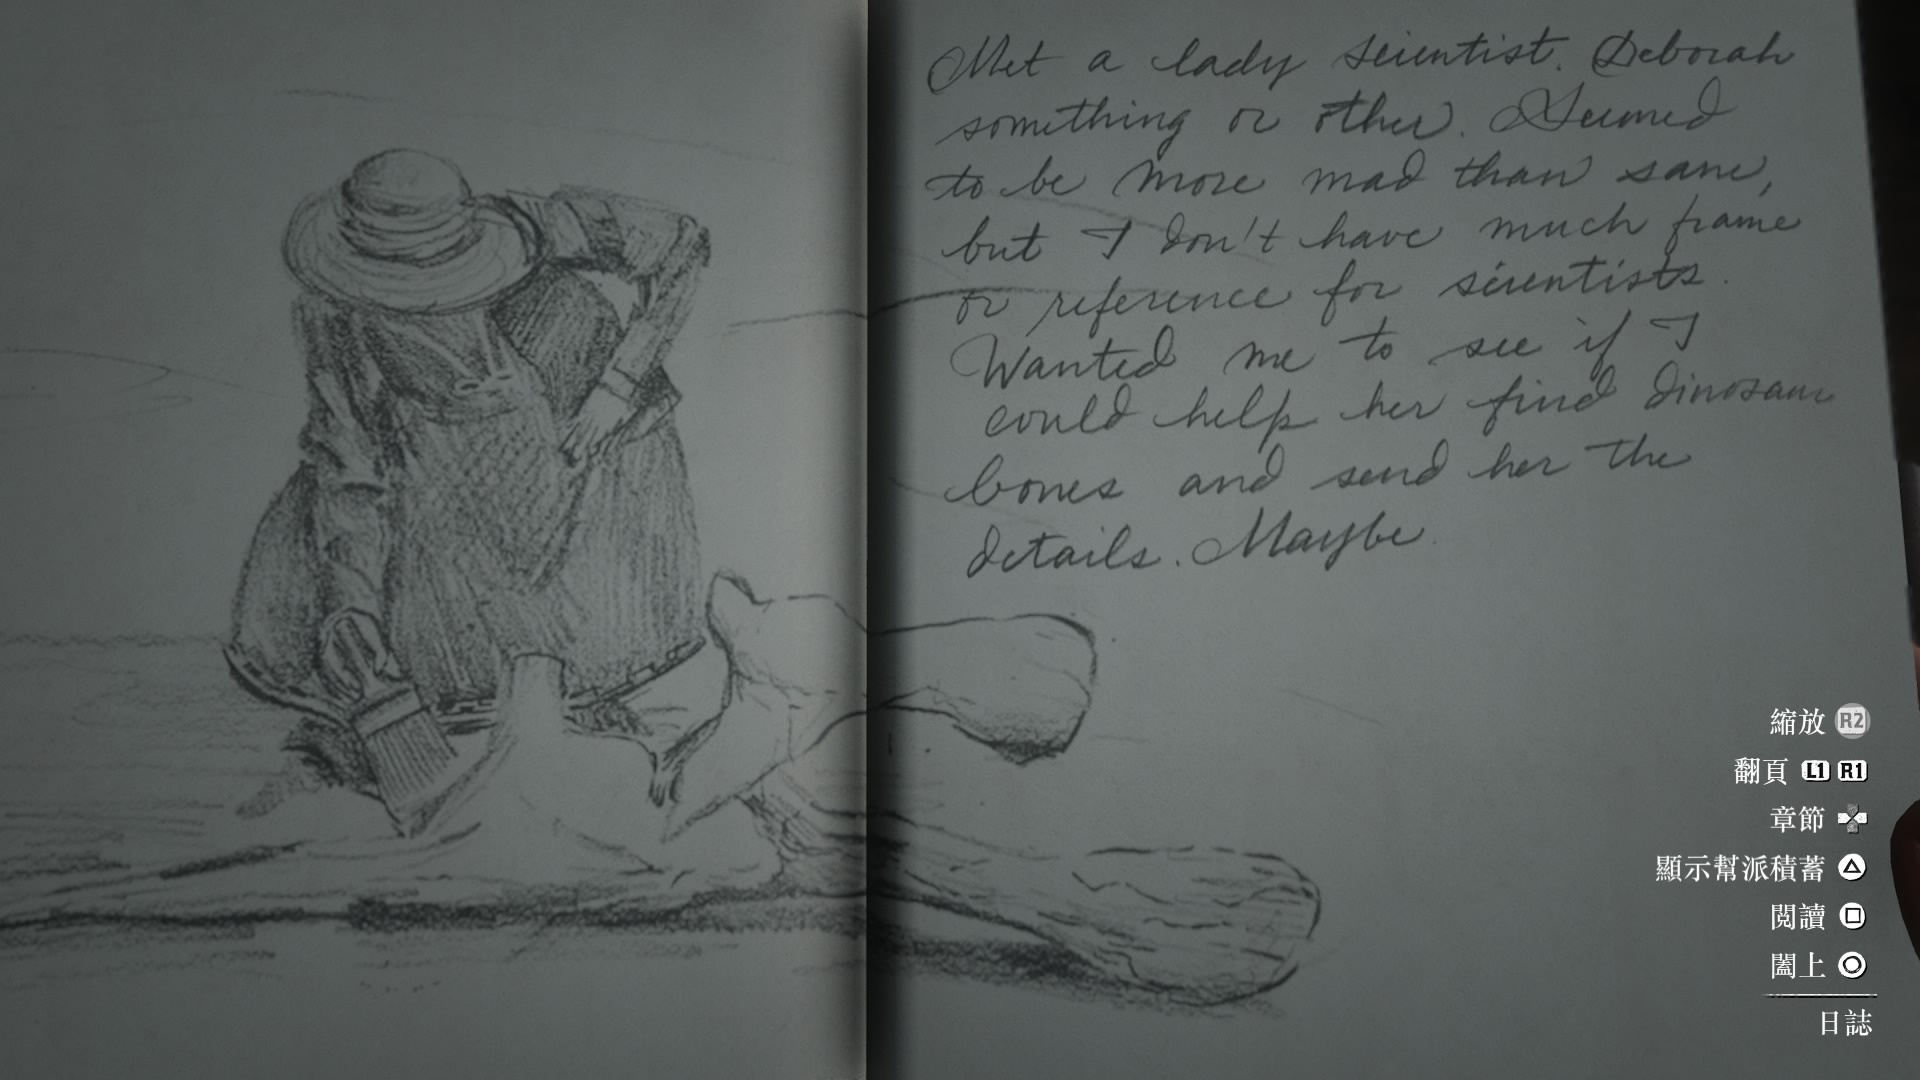 Met a lady scientist. Deborah
something or other. Seemed
to be more mad than sane,
but I don't have much frame
or reference for scientists.
Wanted me to see if I
could help her find dinosaur
bones and send her the
details. Maybe.
縮放 R2
翻頁 L1 R1
章節
顯示幫派積蓄
閱讀
闔上
日誌